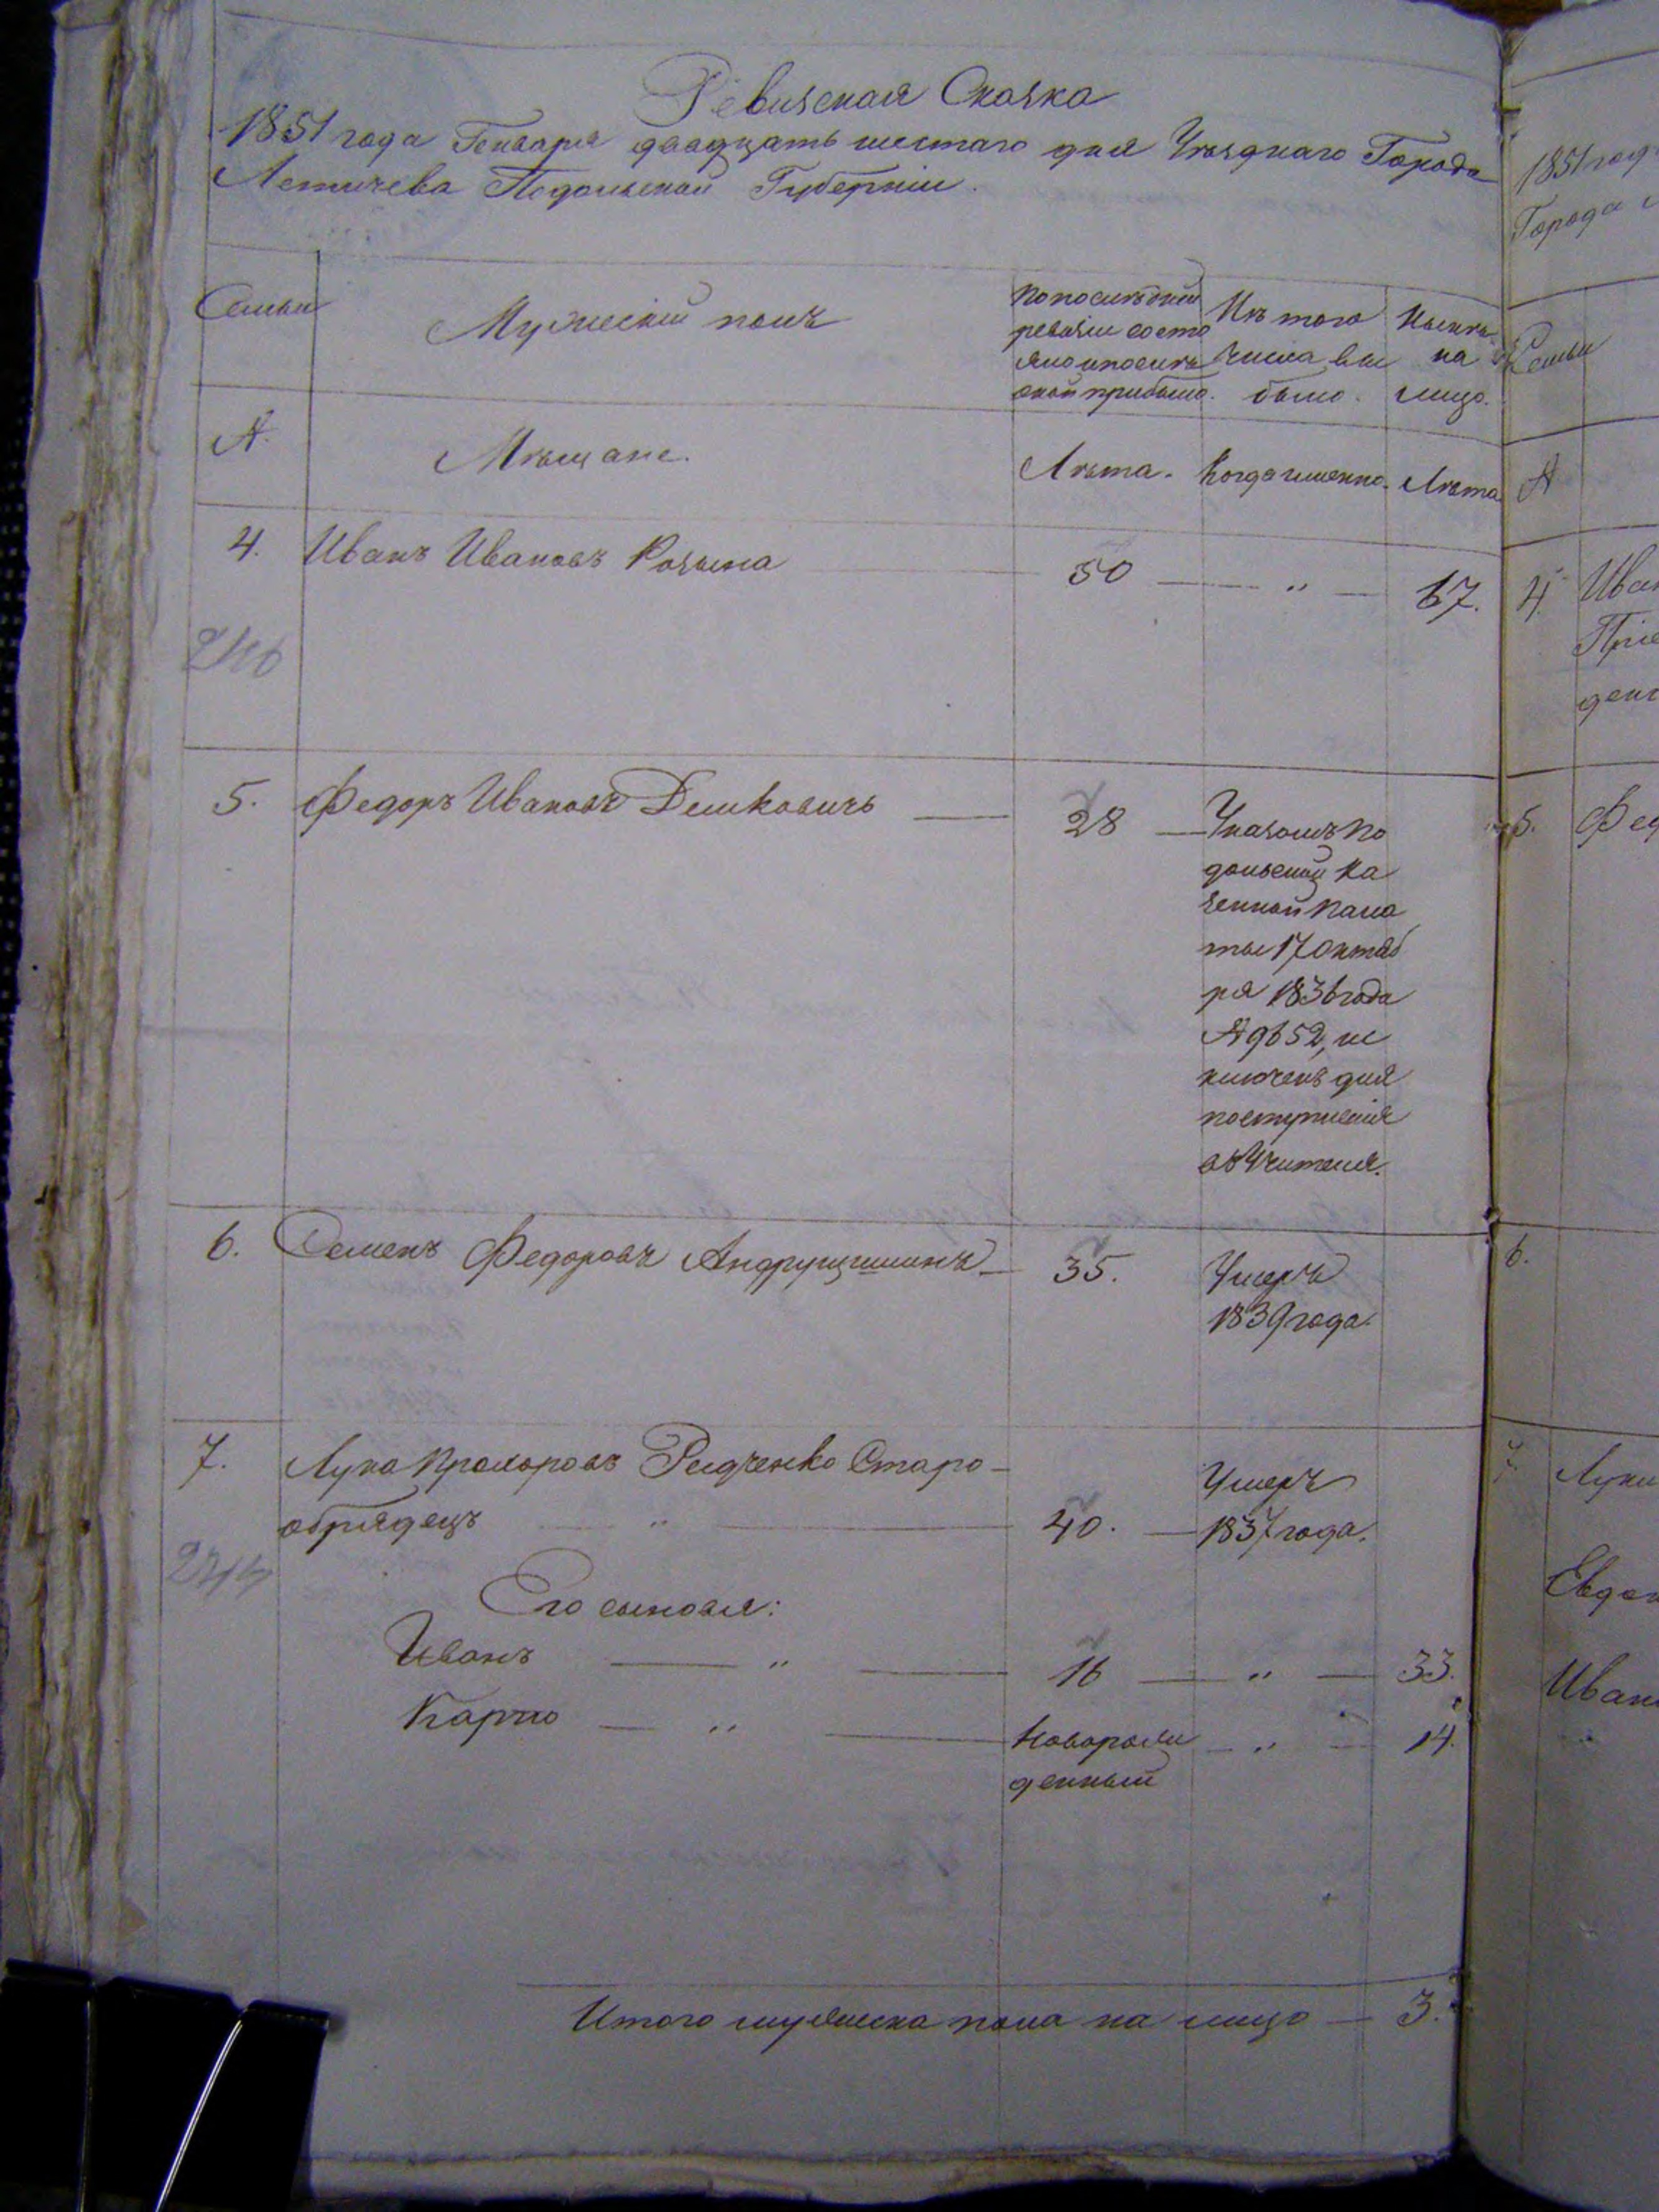 Ревизская Сказка
1851 года Генваря двадцать шестаго дня Уѣзднаго Города
Летичева Подольской Губерніи.
Семьи
Мужескій полъ
По послѣдней
ревизіи состо
яло и послѣ
оной прибыло.
Изъ того
числа вы
было.
Нынѣ
на
лицо.
№
Мѣщане.
Лѣта.
Когда именно.
Лѣта
4. Иванъ Ивановъ 50 — „ — 67.
5. Федоръ Ивановъ Дешковичъ — 28 — Указомъ По
дольской Ка
зенной Пала
ты 17 октяб
ря 1836 года
№ 9652, ис
ключенъ для
поступленія
въ Учителя.
6. Семенъ Федоровъ Андрущишинъ — 35. Умеръ
1839 года.
7. Лука Прохоровъ Редченко Старо-
обрядецъ „ — 40. — Умеръ
1837 года.
Его сыновья:
Иванъ — „ — 16 — „ — 33.
Карпо — „ — Новорож
денный — „ — 14.
Итого мужеска пола на лицо — 3.
1851 год
Города
Семьи
№
4. Иван
5. Фед
6.
7. Луки
Евдок
Иван